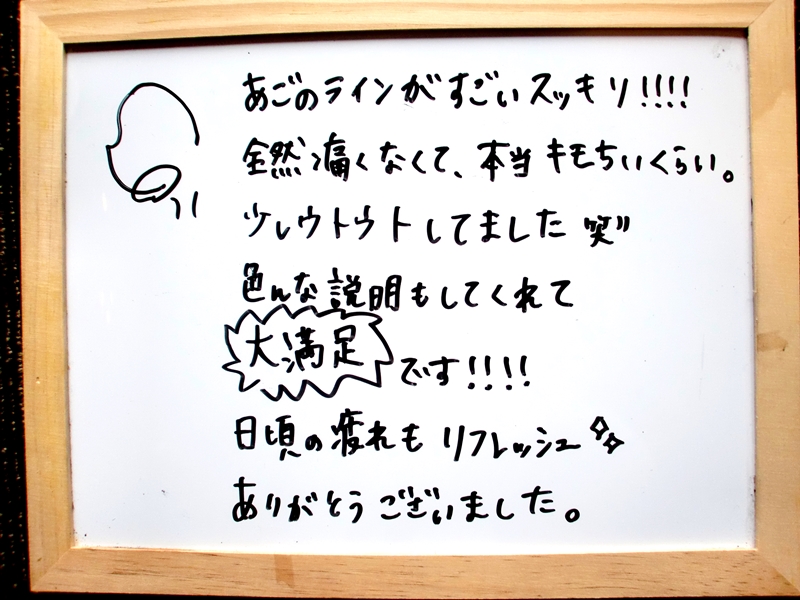 あごのラインがすごいスッキリ!!!!
全然痛くなくて、本当キモちいくらい。
少しウトウトしてました笑〃
色んな説明もしてくれて
大満足です!!!!
日頃の疲れもリフレッシュ✨
ありがとうございました。